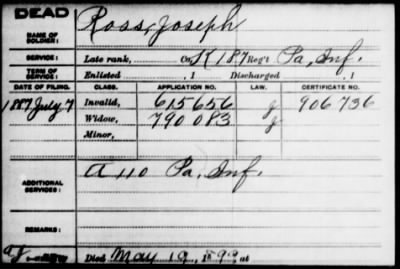 DEAD
NAME OF SOLDIER: Ross, Joseph
SERVICE: Late rank, Co. K 187 Reg't Pa, Inf.
TERM OF SERVICE: Enlisted , 1 Discharged , 1
DATE OF FILING. CLASS. APPLICATION NO. LAW. CERTIFICATE NO.
1887 July 7 Invalid, 615656 g 906736
Widow, 790083 g
Minor,
ADDITIONAL SERVICES: A 110 Pa, Inf.
REMARKS:
Died May 19, 189 at